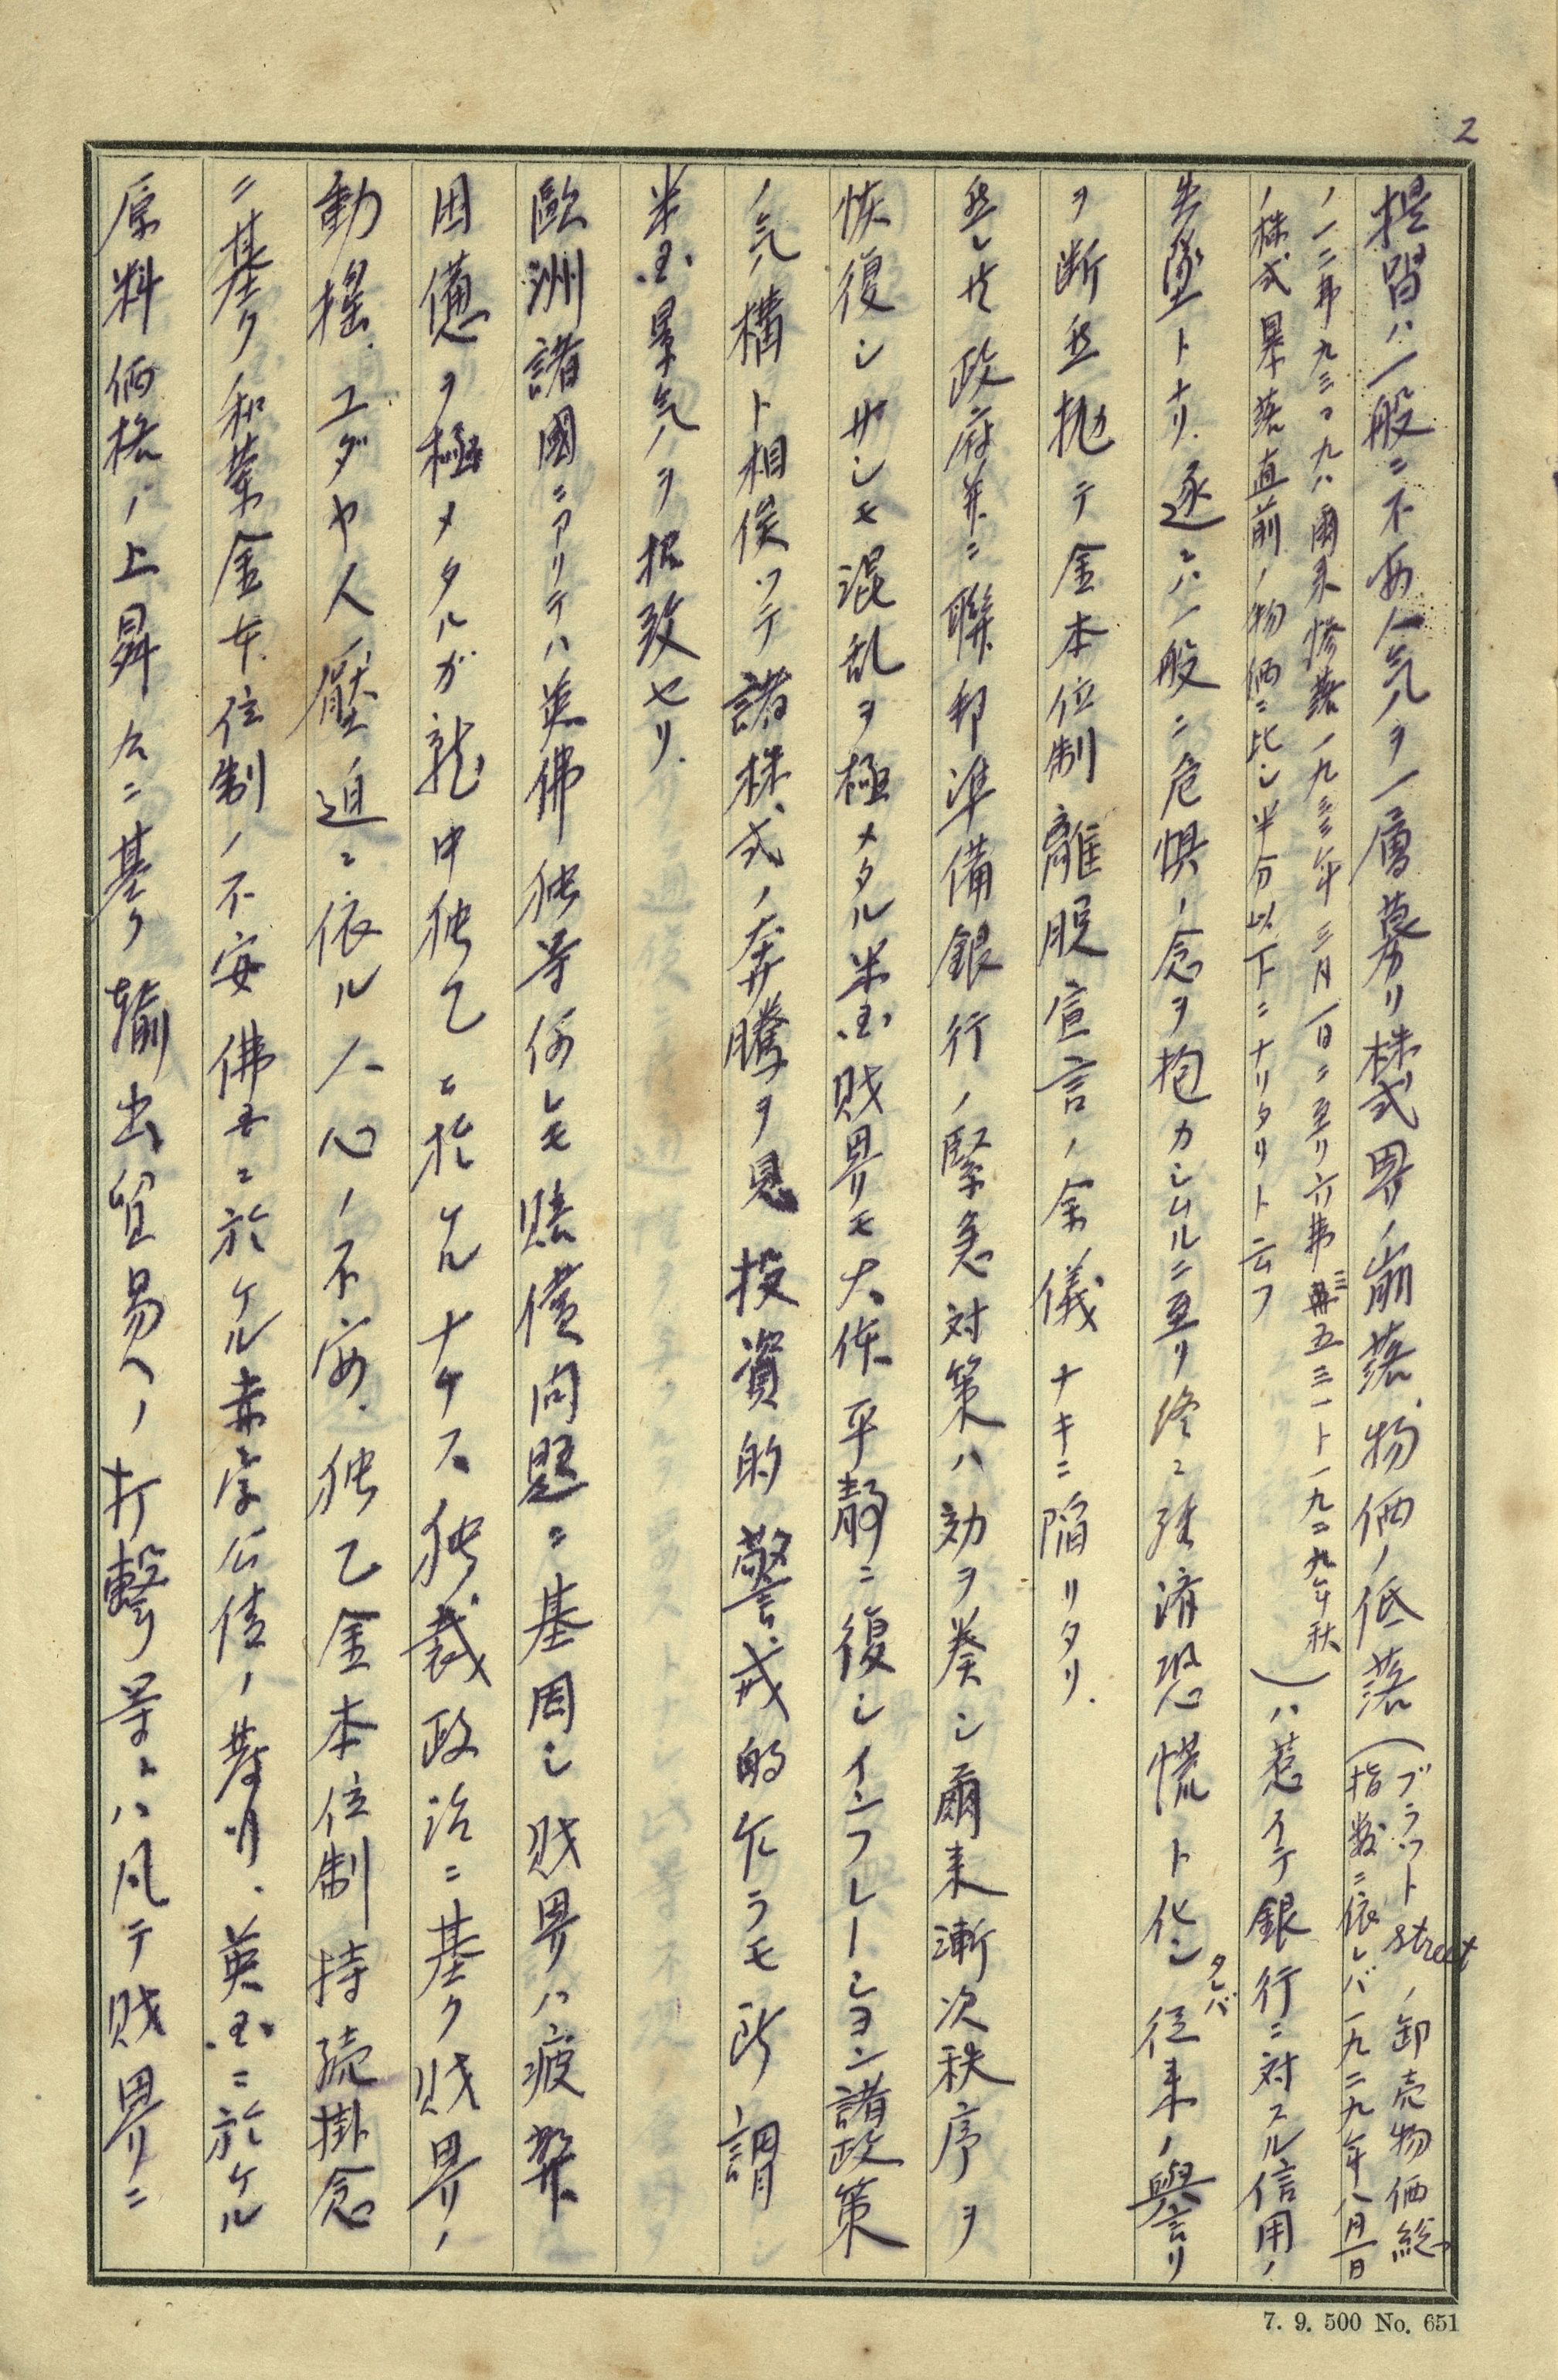 2
提唱ハ一般ニ不安人気ヲ一層募リ株式界ノ崩落、物価ノ低落(ブラットstreetノ卸売物価総
指数ニ依レバ一九二九年八月一日
ノ一二弗九三〇九ハ爾来惨落一九三三年三月一日ニ至リ六弗三五三一ト一九二九年秋
ノ株式暴落直前ノ物価ニ比シ半分以下ニナリタリト云フ)ハ惹イテ銀行ニ対スル信用ノ
失墜トナリ、遂ニハ一般ニ危惧ノ念ヲ抱カシムルニ至リ終ニ経済恐慌ト化シタレバ従来ノ誉リ
ヲ断然抛テ金本位制離脱宣言ノ余儀ナキニ陥リタリ.
然レ共政府並ニ聯邦準備銀行ノ緊急対策ハ効ヲ奏シ爾来漸次秩序ヲ
恢復シサシモ混乱ヲ極メタル米国財界モ大体平静ニ復シインフレーション諸政策
ノ気構ト相俟ツテ諸株式ノ奔騰ヲ見投資的警戒的乍ラモ所謂
米国景気ヲ招致セリ.
歐洲諸國ニアリテハ英佛独等何レモ賠償問題ニ基因シ財界ハ疲弊
困憊ヲ極メタルガ就中独乙ニ於ケルナチス独裁政治ニ基ク財界ノ
動揺、ユダヤ人壓迫ニ依ル人心ノ不安、独乙金本位制持続掛念
ニ基ク和蘭金本位制ノ不安佛国ニ於ケル赤字公債ノ発行、英国ニ於ケル
原料価格ノ上昇ニ基ク輸出貿易ヘノ打撃等ハ凡テ財界ニ
7. 9. 500 No. 651